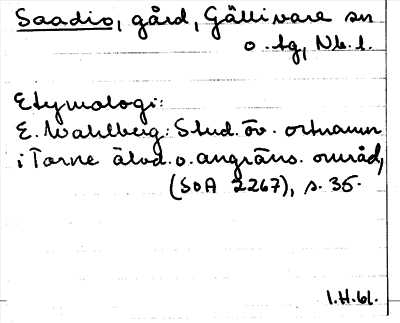 Saadio, gård, Gällivare sn
o. tg, Nb. l.
Etymologi:
E. Wahlberg: Stud. öv. ortnamn
i Torne älvd. o. angräns. områd,
(SOA 2267), s. 35.
I.H.61.